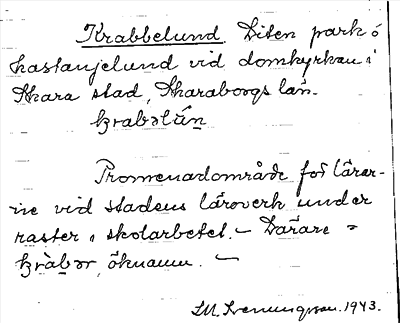 Krabbelund. Liten park o
kastanjelund vid domkyrkan i
Skara stad, Skaraborgs län.
krabəlún
Promenadområde för lärar-
ne vid stadens läroverk under
raster i skolarbetet. — Lärare =
kràbər, öknamn. —
1943.